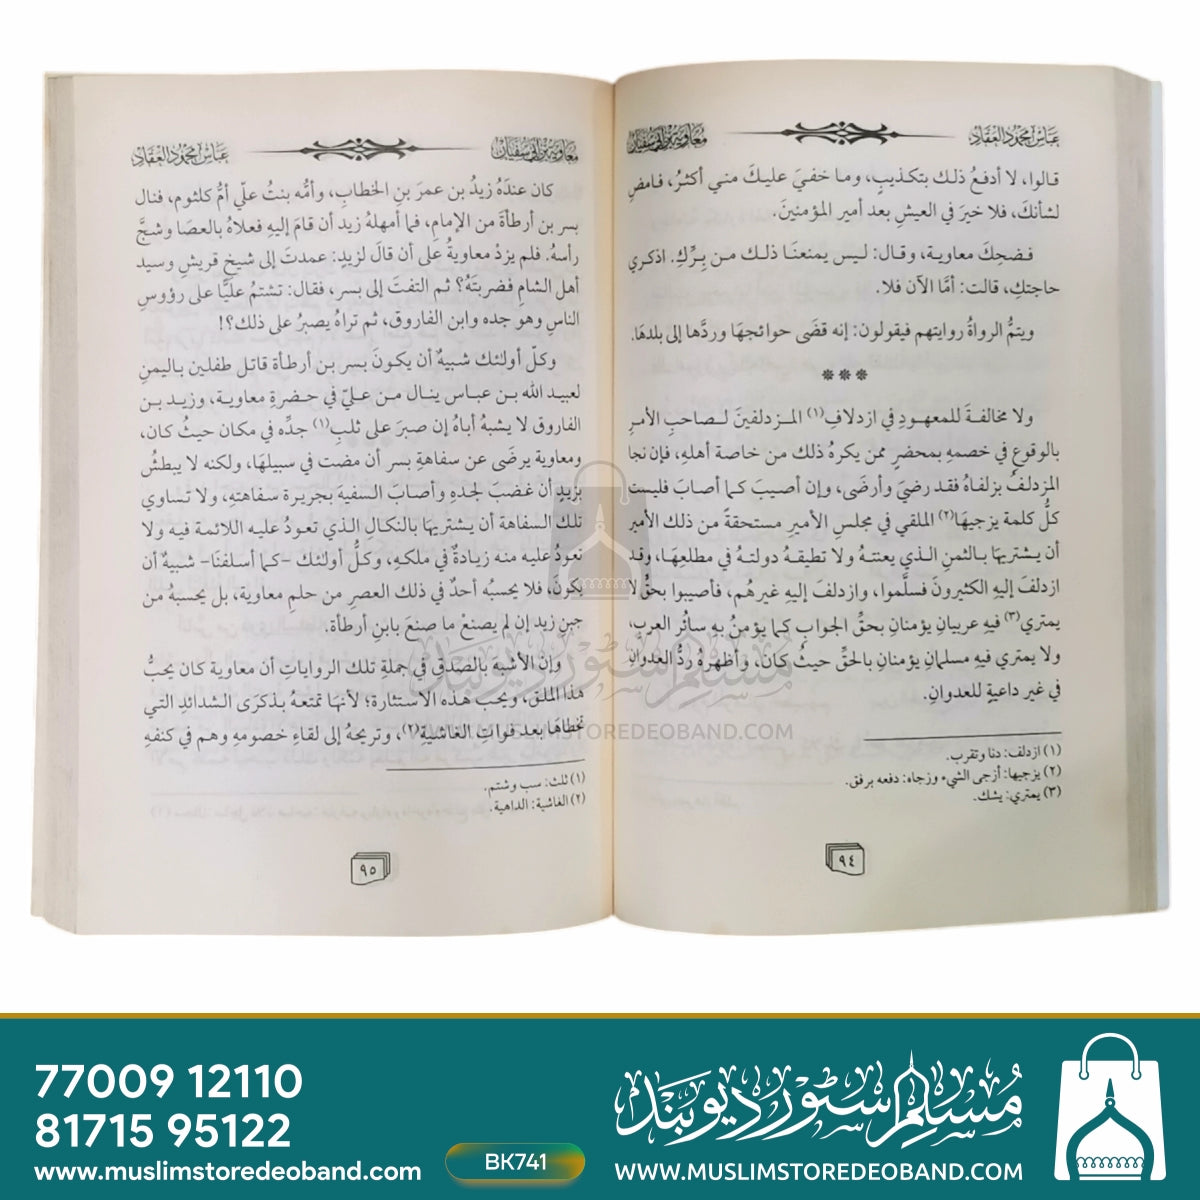 عباس محمود العقاد
معاوية بن أبي سفيان
قالوا، لا أدفعُ ذلك بتكذيبٍ، وما خفيَ عليكَ مني أكثرُ، فامضِ
لشأنكَ، فلا خيرَ في العيشِ بعد أميرِ المؤمنينَ.
فضحِكَ معاوية، وقال: ليس يمنعنَا ذلك من بِرِّكِ. اذكري
حاجتكِ، قالت: أمَّا الآن فلا.
ويتمُّ الرواةُ روايتهم فيقولون: إنه قضَى حوائجهَا وردَّها إلى بلدهَا.
***
ولا مخالفةَ للمعهودِ في ازدلافِ(١) المزدلفينَ لصاحبِ الأمرِ
بالوقوعِ في خصمهِ بمحضرٍ ممن يكرهُ ذلك من خاصة أهلهِ، فإن نجا
المزدلفُ بزلفاهُ فقد رضيَ وأرضَى، وإن أصيبَ كما أصابَ فليست
كلُّ كلمة يزجيهَا(٢) الملقي في مجلسِ الأميرِ مستحقةً من ذلك الأميرِ
أن يشتريهَا بالثمنِ الذي يعنتهُ ولا تطيقهُ دولتهُ في مطلعِهَا، وقد
ازدلفَ إليهِ الكثيرونَ فسلَّموا، وازدلفَ إليهِ غيرهُم، فأصيبوا بحقٍّ لا
يمتري(٣) فيهِ عربيانِ يؤمنانِ بحقِّ الجوابِ كما يؤمنُ به سائرُ العربِ،
ولا يمتري فيه مسلمانِ يؤمنانِ بالحقِّ حيثُ كان، وأظهرهُ ردُّ العدوانِ
في غير داعيةٍ للعدوانِ.
(١) ازدلف: دنا وتقرب.
(٢) يزجيها: أزجى الشيء وزجاه: دفعه برفق.
(٣) يمتري: يشك.
٩٤
معاوية بن أبي سفيان
عباس محمود العقاد
كان عندَهُ زيدُ بن عمرَ بنِ الخطابِ، وأمُّه بنتُ عليٍّ أمُّ كلثوم، فنال
بسر بن أرطأةَ من الإمامِ، فما أمهلهُ زيد أن قامَ إليهِ فعلاهُ بالعصَا وشجَّ
رأسهُ. فلم يزدْ معاويةُ على أن قالَ لزيدٍ: عمدتَ إلى شيخِ قريشٍ وسيد
أهل الشامِ فضربتَهُ؟ ثم التفتَ إلى بسر، فقال: تشتمُ عليًّا على رؤوسِ
الناسِ وهو جده وابن الفاروق، ثم تراهُ يصبرُ على ذلك؟!
وكلّ أولئك شبيهٌ أن يكونَ بسر بن أرطأة قاتل طفلين باليمنِ
لعبيد الله بن عباس ينال من عليّ في حضرةِ معاوية، وزيد بن
الفاروق لا يشبهُ أباهُ إن صبرَ على ثلبِ(١) جدِّه في مكان حيثُ كان،
ومعاوية يرضَى عن سفاهةِ بسر أن مضت في سبيلهَا، ولكنه لا يبطشُ
بزيدٍ أن غضبَ لجدهِ وأصابَ السفيهَ بجريرة سفاهتهِ، ولا تساوي
تلك السفاهة أن يشتريهَا بالنكالِ الذي تعودُ عليه اللائمة فيه ولا
تعودُ عليه منه زيادةٌ في ملكهِ، وكلُّ أولئك -كما أسلفنَا- شبيهٌ أن
يكونَ، فلا يحسبُه أحدٌ في ذلك العصرِ من حلمِ معاوية، بل يحسبهُ من
جبنِ زيد إن لم يصنعْ ما صنعَ بابنِ أرطأة.
وإن الأشبهَ بالصدقِ في جملةِ تلك الرواياتِ أن معاوية كان يحبُّ
هذا الملق، ويحب هذه الاستثارة؛ لأنهَا تمتعهُ بذكرَى الشدائدِ التي
تخطاهَا بعد فواتِ الغاشيةِ(٢)، وتريحهُ إلى لقاءِ خصومهِ وهم في كنفهِ
(١) ثلث: سب وشتم.
(٢) الغاشية: الداهية.
٩٥
مسلم سٹور دیوبند
WWW.MUSLIMSTOREDEOBAND.COM
77009 12110
81715 95122
www.muslimstoredeoband.com
BK741
مسلم سٹور دیوبند
WWW.MUSLIMSTOREDEOBAND.COM